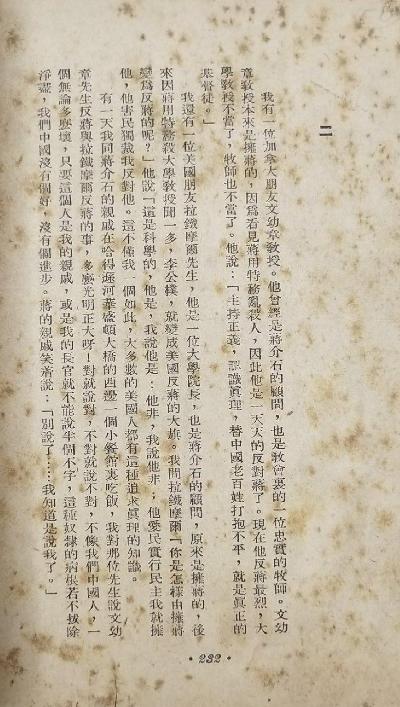 二
我有一位加拿大朋友文幼章教授。他曾經是蔣介石的顧問，也是教會裏的一位忠實的牧師。文幼
章教授本來是擁蔣的，因爲看見蔣用特務亂殺人，因此他是一天天的反對蔣了。現在他反蔣最烈，大
學教授不當了，牧師也不當了。他說：「主持正義，認識眞理，替中國老百姓打抱不平，就是眞正的
基督徒。」
我還有一位美國朋友拉鐵摩爾先生，他是一位大學院長，也是蔣介石的顧問，原來是擁蔣的，後
來因蔣用特務殺大學教授聞一多，李公樸，就變成美國反蔣的大旗。我問拉鐵摩爾「你是怎樣由擁蔣
變爲反蔣的呢？」他說「這是科學的，他是，我說他是：他非，我說他非；他愛民實行民主我就擁
他，他害民獨裁我反對他。這不僅我一個如此，大多數的美國人都有這種追求眞理的知識。
有一天我同蔣介石的親戚在哈得遜河華盛頓大橋的西邊一個小餐館裏吃飯，我對那位先生說文幼
章先生反蔣與拉鐵摩爾反蔣的事，多麽光明正大呀！對就說對，不對就說不對，不像我們中國人，一
個無論多麽壞，只要這個人是我的親戚，或是我的長官就不能說半個不字，這種奴隸的病根若不拔除
淨盡，我們中國沒有個好，沒有個進步。蔣的親戚笑着說：「別說了……我知道是說我了。」
·232·